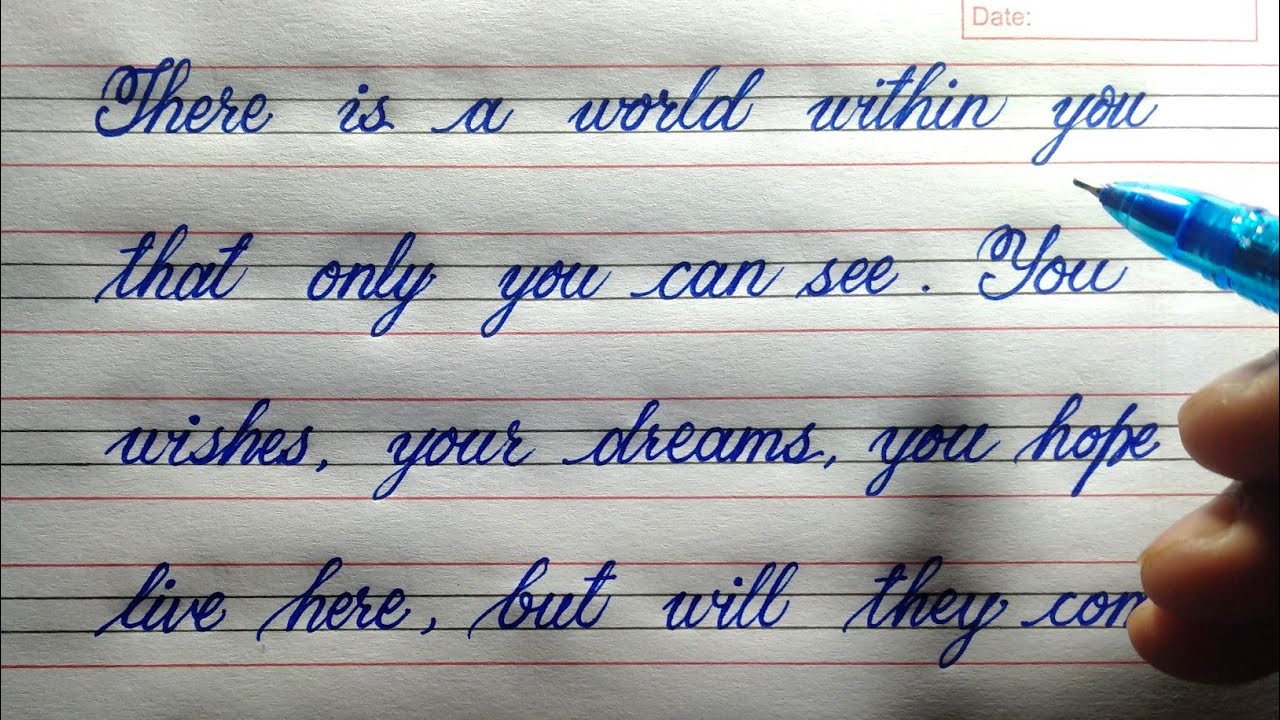 Date:
There is a world within you
that only you can see. You
wishes, your dreams, you hope
live here, but will they